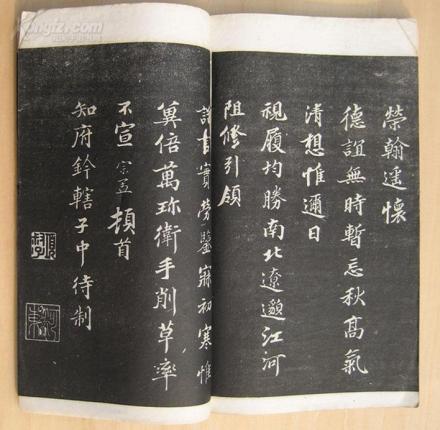 榮翰遙懷
德誼無時暫忘秋高氣
清想惟邇日
視履均勝南北遼邈江河
阻修引領
實勞鑒寐初寒惟
冀倍萬珍衛手削草率
不宣宗孟頓首
知府鈐轄子中待制